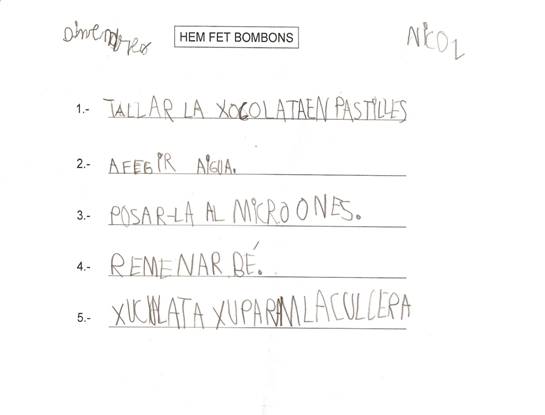 Divendres HEM FET BOMBONS NICOL
1.- TALLAR LA XOCOLATAEN PASTILLES
2.- AFEGIR AIGUA.
3.- POSAR-LA AL MICROONES.
4.- REMENAR BÉ.
5.- XUCULATA XUPARMLACULLERA